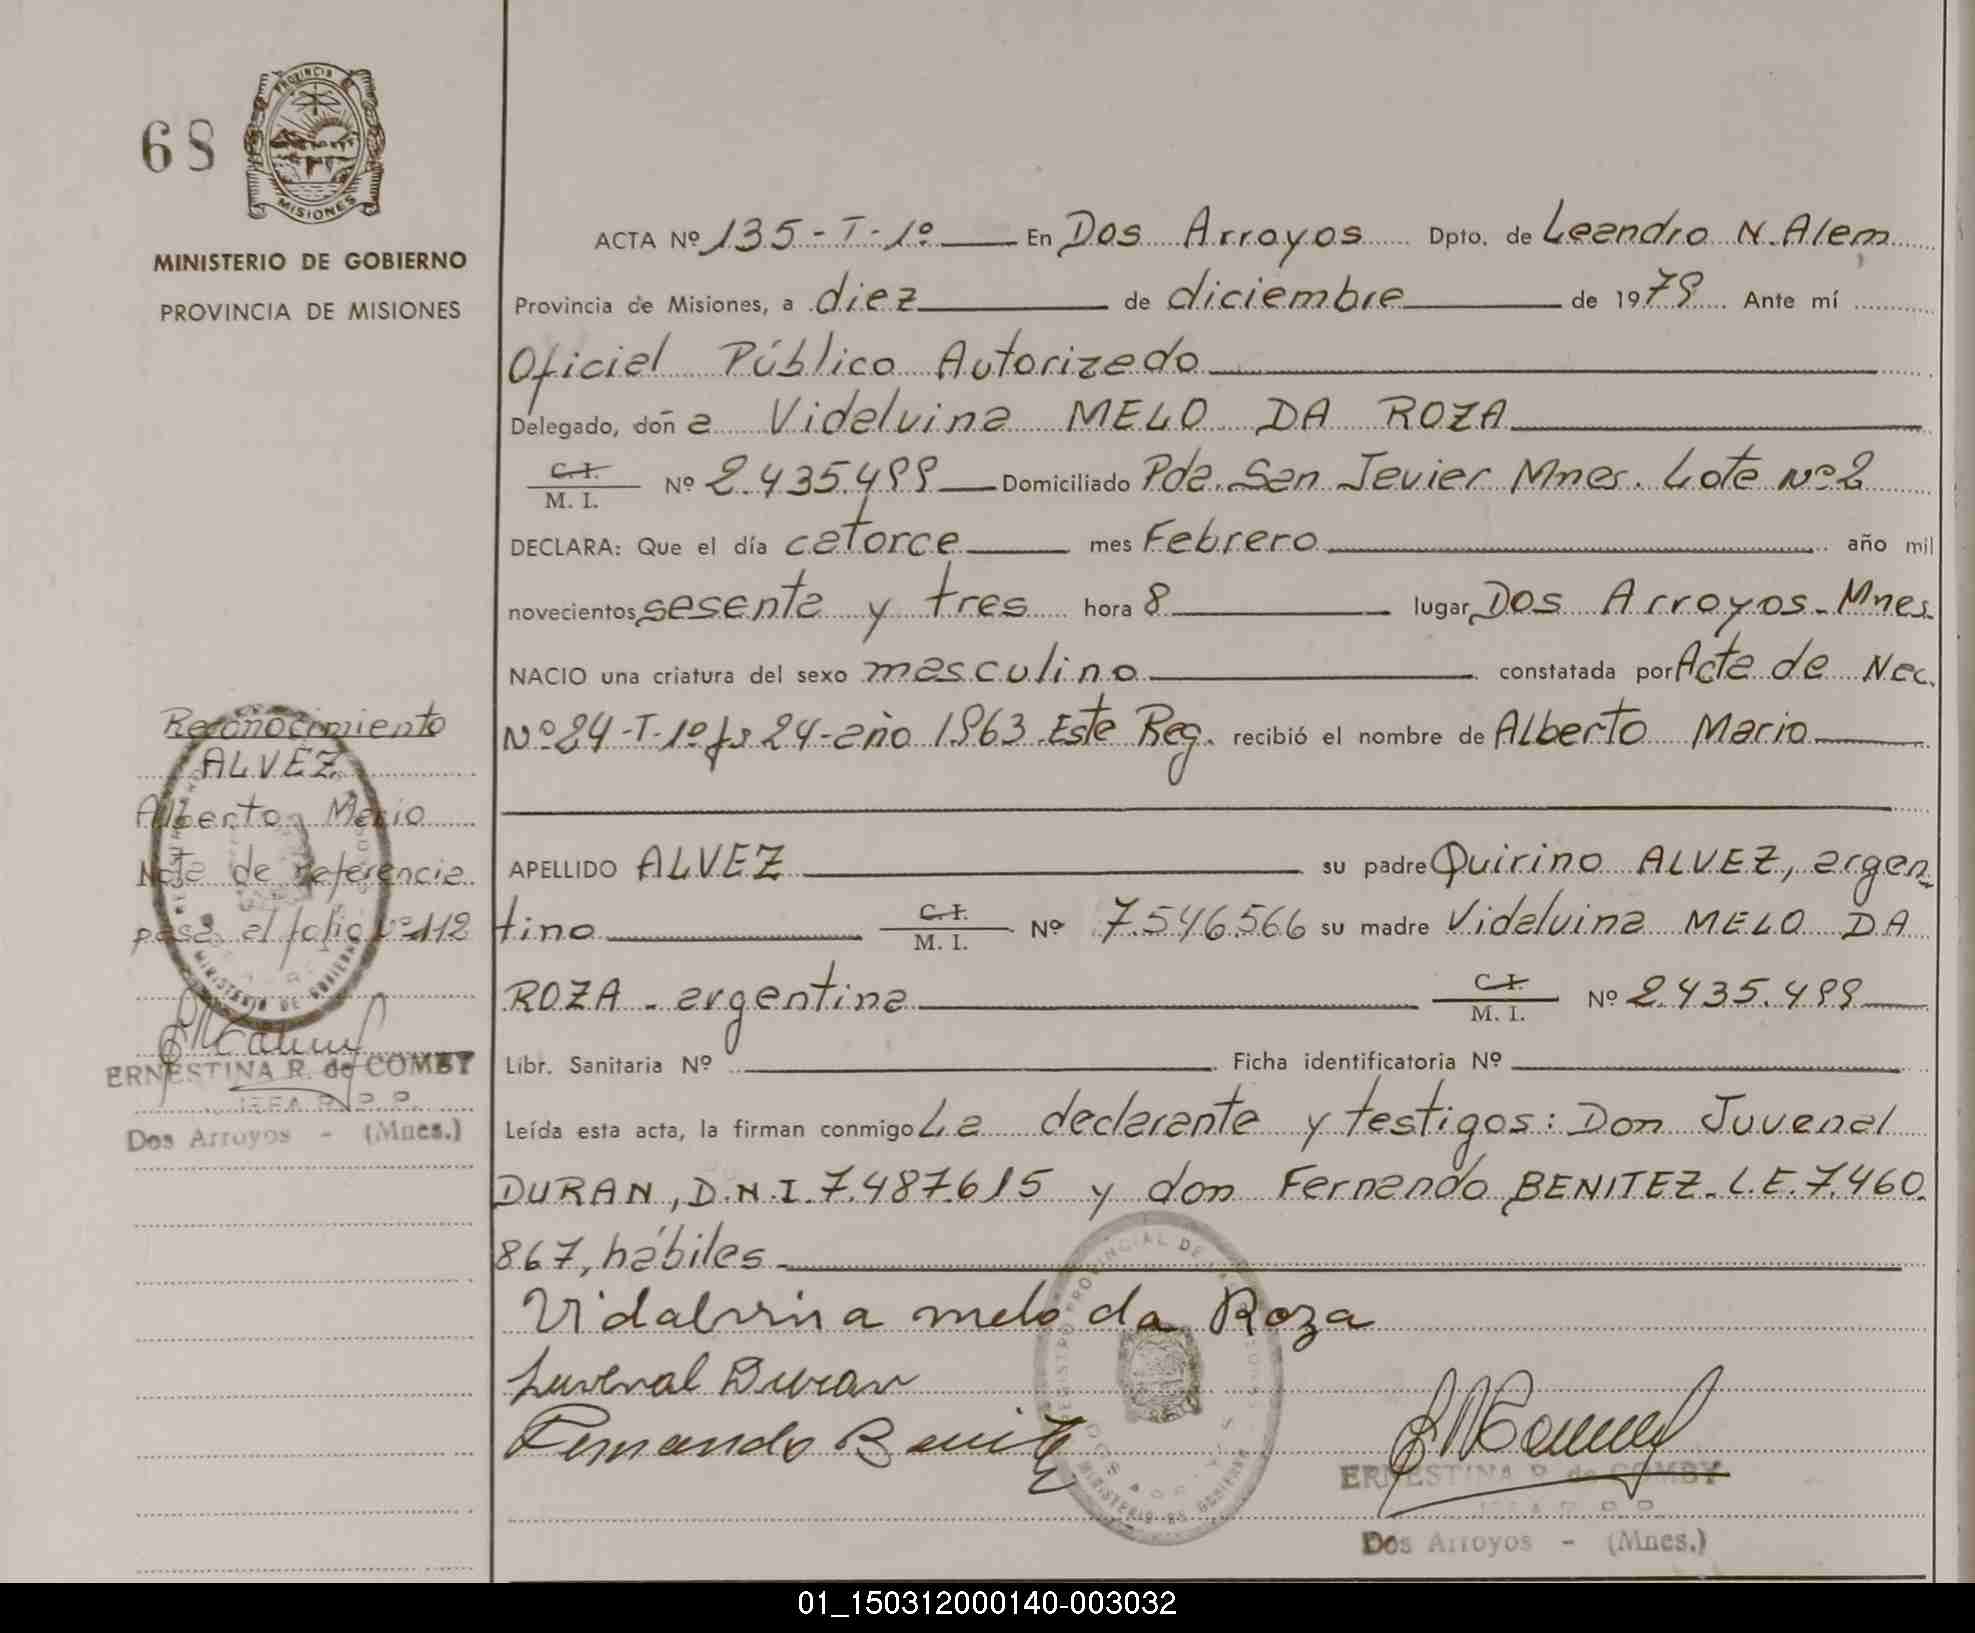 68
PROVINCIA
MISIONES
MINISTERIO DE GOBIERNO
PROVINCIA DE MISIONES
ACTA Nº 135-T-1º En Dos Arroyos Dpto. de Leandro N. Alem
Provincia de Misiones, a diez de diciembre de 1979 Ante mí
Oficial Público Autorizado
Delegado, doña Videlvina MELO DA ROZA
C.I. / M. I. Nº 2.435.499 Domiciliado Pda. San Javier Mnes. Lote Nº 2
DECLARA: Que el día catorce mes Febrero año mil
novecientos sesenta y tres hora 8 lugar Dos Arroyos - Mnes.
NACIO una criatura del sexo masculino constatada por Acta de Nac.
Nº 24-T-1º fs 24-año 1963 Este Reg. recibió el nombre de Alberto Mario
APELLIDO ALVEZ su padre Quirino ALVEZ, argen
tino C.I. / M. I. Nº 7.546.566 su madre Videlvina MELO DA
ROZA - argentina C.I. / M. I. Nº 2.435.499
Libr. Sanitaria Nº Ficha identificatoria Nº
Leída esta acta, la firman conmigo La declarante y testigos: Don Juvenal
DURAN, D.N.I. 7.487.615 y don Fernando BENITEZ - L.E. 7.460.
867, hábiles
Vidalvina melo da Roza
Juvenal Duran
Fernando Benitez
ERNESTINA R. de COMBY
Dos Arroyos - (Mnes.)
Reconocimiento
ALVEZ
Alberto Mario
Nota de referencia
pasa al folio Nº 112
ERNESTINA R. de COMBY
JEFA R. P. P.
Dos Arroyos - (Mnes.)
MINISTERIO DE GOBIERNO
REGISTRO PROVINCIAL DE LAS PERSONAS
DOS ARROYOS
MINISTERIO DE GOBIERNO
01_150312000140-003032